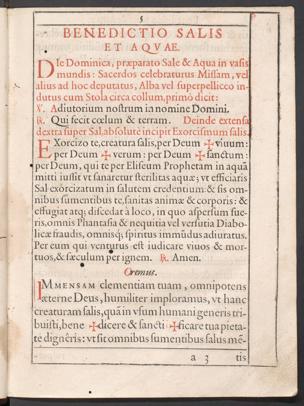 5
BENEDICTIO SALIS
ET AQVAE.
DIe Dominica, præparato Sale & Aqua in vasis
mundis: Sacerdos celebraturus Missam, vel
alius ad hoc deputatus, Alba vel superpelliceo in-
dutus cum Stola circa collum, primò dicit:
℣. Adiutorium nostrum in nomine Domini.
℟. Qui fecit cœlum & terram. Deinde extensa
dextra super Sal absolutè incipit Exorcismum salis.
EXorcizo te, creatura salis, per Deum ✠ viuum:
per Deum ✠ verum: per Deum ✠ sanctum:
per Deum, qui te per Eliseum Prophetam in aquã
mitti iussit vt sanaretur sterilitas aquæ; vt efficiaris
Sal exorcizatum in salutem credentium: & sis om-
nibus sumentibus te, sanitas animæ & corporis: &
effugiat atq; discedat à loco, in quo aspersum fue-
ris, omnis Phantasia & nequitia vel versutia Diabo-
licæ fraudis, omnisq; spiritus immũdus adiuratus.
Per eum qui venturus est iudicare viuos & mor-
tuos, & sæculum per ignem. ℟. Amen.
Oremus.
IMMENSAM clementiam tuam, omnipotens
æterne Deus, humiliter imploramus, vt hanc
creaturam salis, quã in vsum humani generis tri-
buisti, bene ✠ dicere & sancti ✠ ficare tua pieta-
te dignêris: vt sit omnibus sumentibus salus mẽ-
a 3
tis